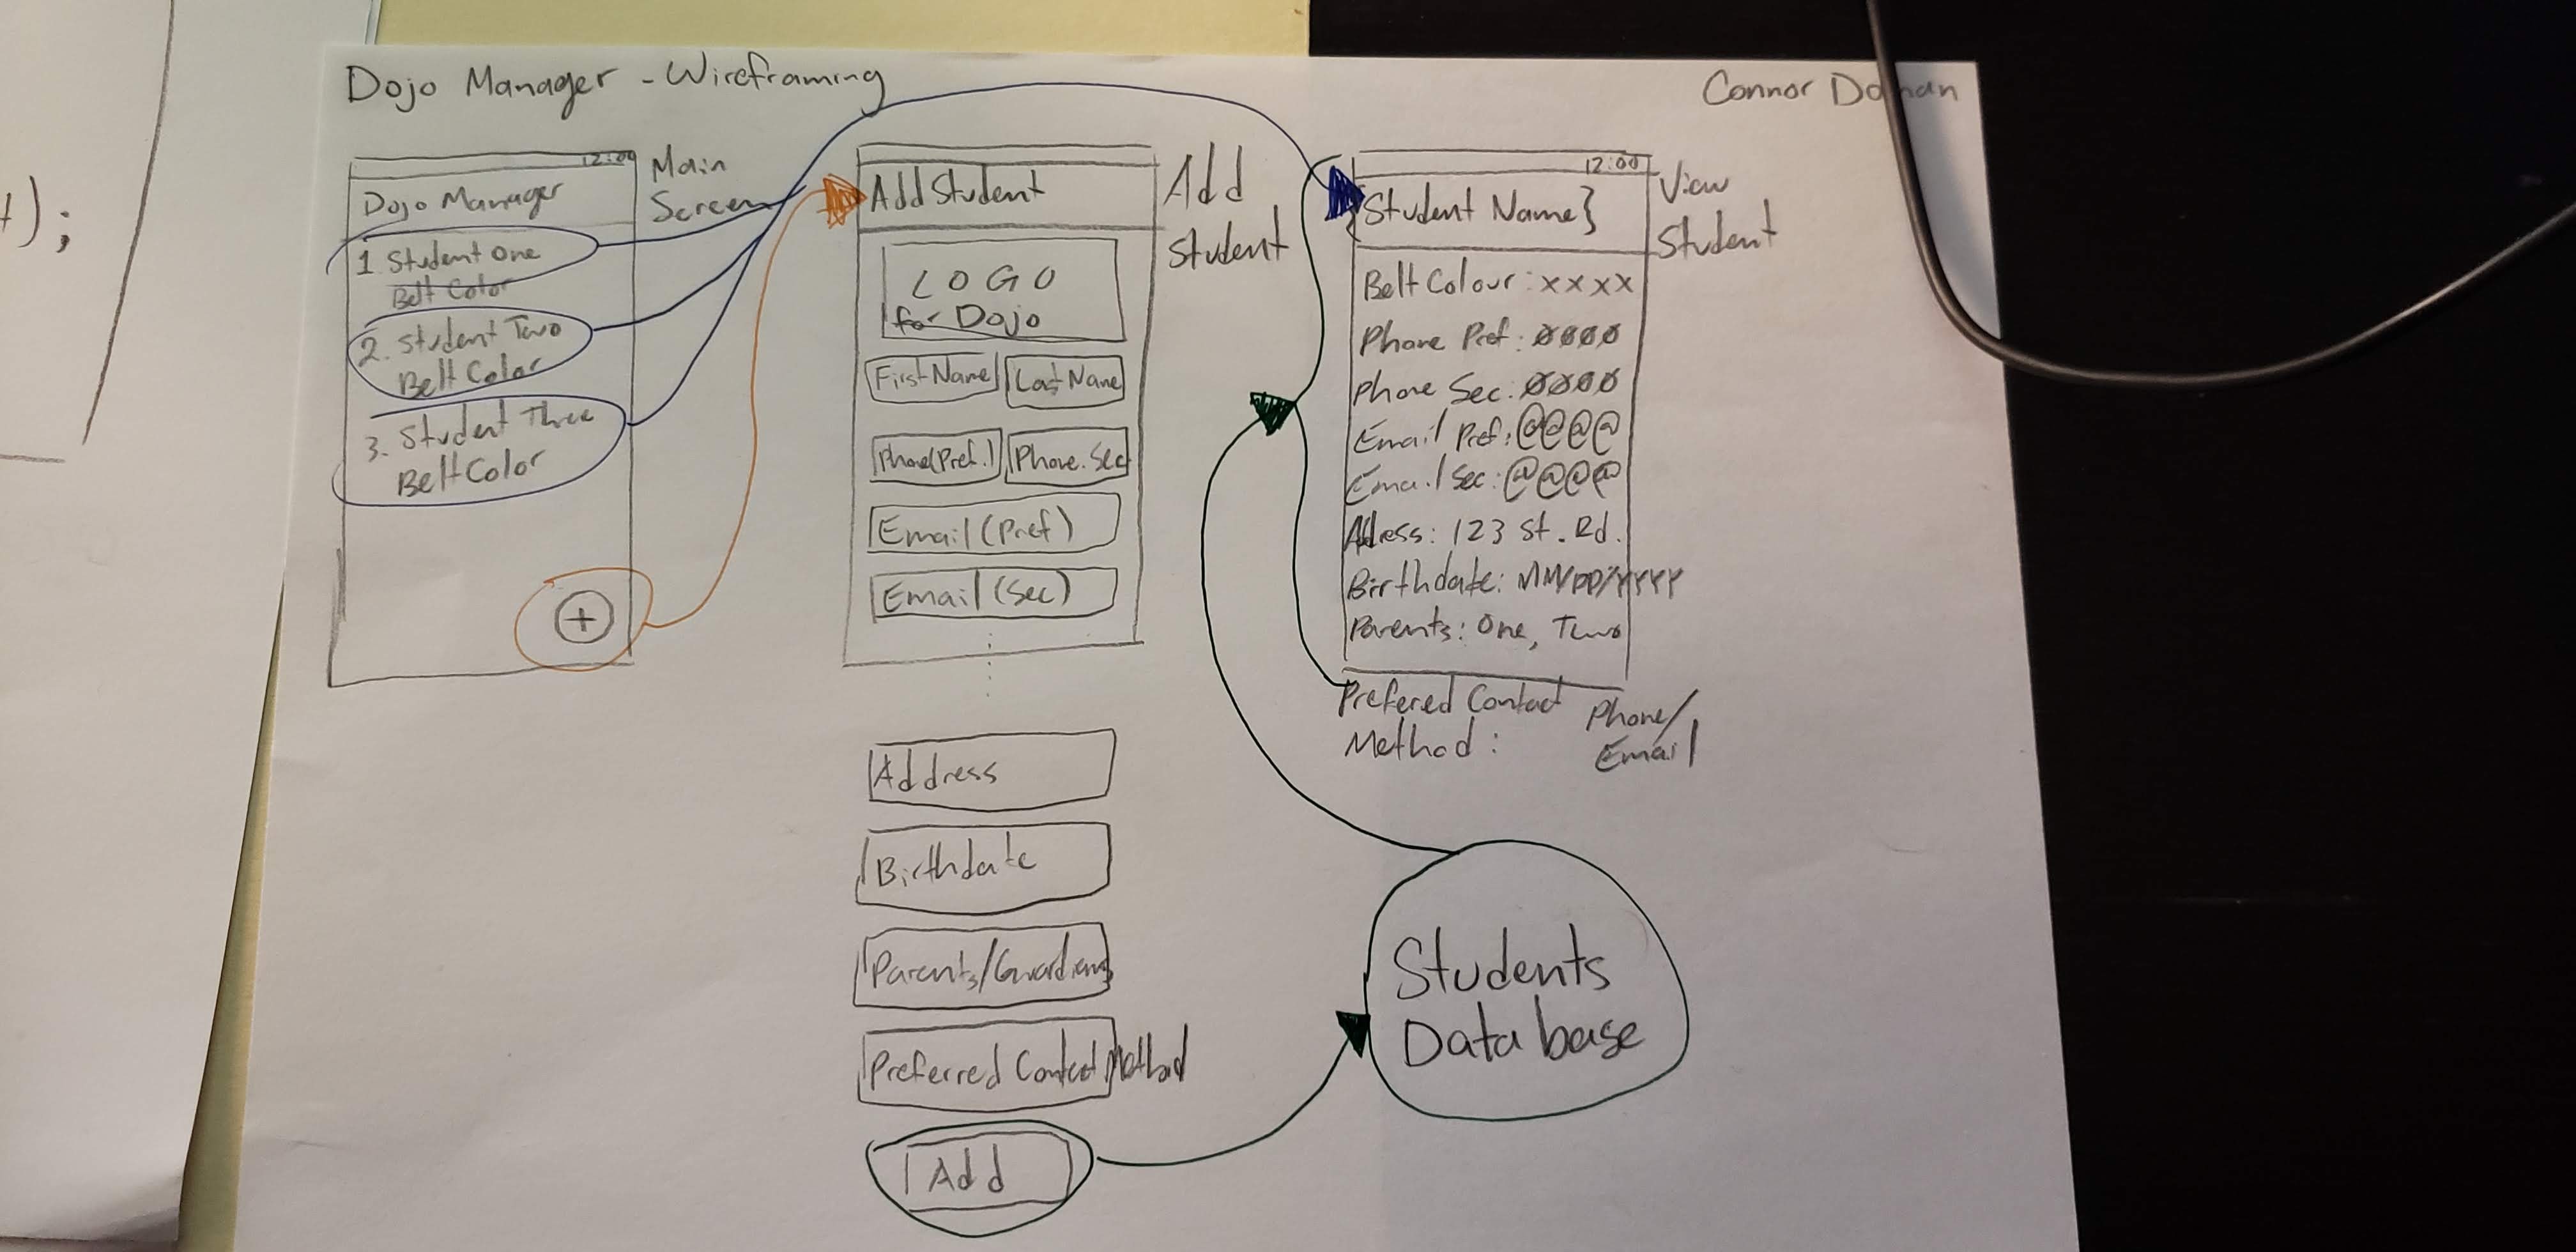 t);
Dojo Manager - Wireframing
Connor
12:00
Main
Screen
Dojo Manager
1. Student One
Belt Color
2. Student Two
Belt Color
3. Student Three
Belt Color
+
Add Student
Add
Student
LOGO
for Dojo
First Name
Last Name
Phone(Pref.)
Phone. Sec
Email (Pref)
Email (Sec)
Address
Birthdate
Parents/Guardians
Preferred Contact Method
Add
12:00
View
Student
{Student Name}
Belt Colour: xxxx
Phone Pref: ØØØØ
Phone Sec: ØØØØ
Email Pref: @@@@
Email Sec: @@@@
Adress: 123 St. Rd.
Birthdate: MM/DD/YYYY
Parents: One, Two
Prefered Contact
Method:
Phone/
Email
Students
Database